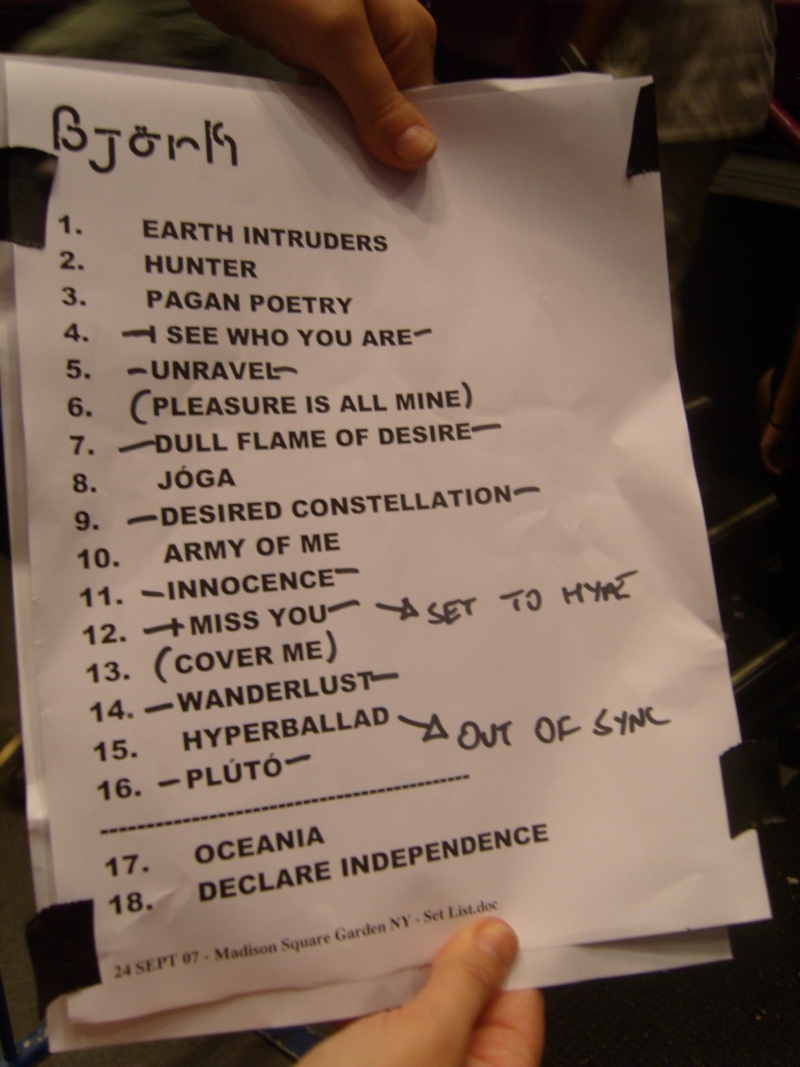 Björk
1. EARTH INTRUDERS
2. HUNTER
3. PAGAN POETRY
4. I SEE WHO YOU ARE
5. UNRAVEL
6. (PLEASURE IS ALL MINE)
7. DULL FLAME OF DESIRE
8. JÓGA
9. DESIRED CONSTELLATION
10. ARMY OF ME
11. INNOCENCE
12. I MISS YOU → SET TO
13. (COVER ME)
14. WANDERLUST
15. HYPERBALLAD → OUT OF SYNC
16. PLÚTÓ
17. OCEANIA
18. DECLARE INDEPENDENCE
24 SEPT 07 - Madison Square Garden NY - Set List.doc